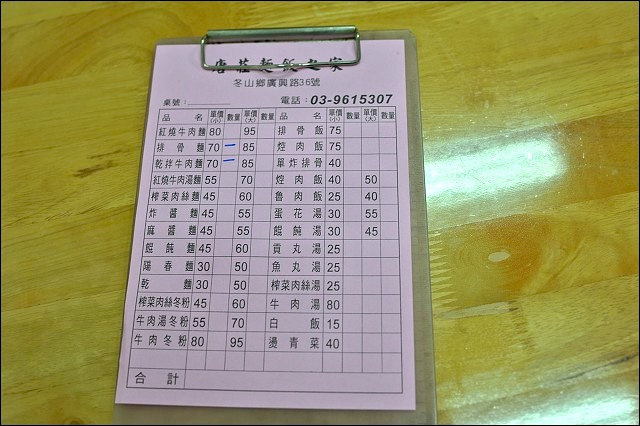 唐莊麵飯之家
冬山鄉廣興路36號
桌號：
電話：03-9615307
品名 單價(小) 數量 單價(大) 數量 品名 單價(小) 數量 單價(大) 數量
紅燒牛肉麵 80 95 排骨飯 75
排骨麵 70 一 85 焢肉飯 75
乾拌牛肉麵 70 一 85 單炸排骨 40
紅燒牛肉湯麵 55 70 焢肉飯 40 50
榨菜肉絲麵 45 60 魯肉飯 25 40
炸醬麵 45 55 蛋花湯 30 55
麻醬麵 45 55 餛飩湯 30 45
餛飩麵 45 60 貢丸湯 25
陽春麵 30 50 魚丸湯 25
乾麵 30 50 榨菜肉絲湯 25
榨菜肉絲冬粉 45 60 牛肉湯 80
牛肉湯冬粉 55 70 白飯 15
牛肉冬粉 80 95 燙青菜 40
合計